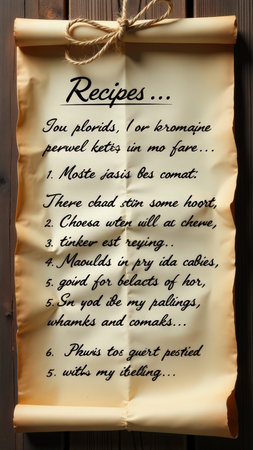 Recipes...
Iou plorids, I or kromajne
perwel ketis in mo fare...
1. Moste jasis bes comat:
There chad stin some hoort,
2. Choesa wten will at cherve,
3. tinker est reying..
4. Maoulds in pry ida cabies,
5. goird for belacts of hor,
5. Sn yod ile my palings,
whamks and comaks...
6. Phwis tos guert pestied
5. witis my itselling...